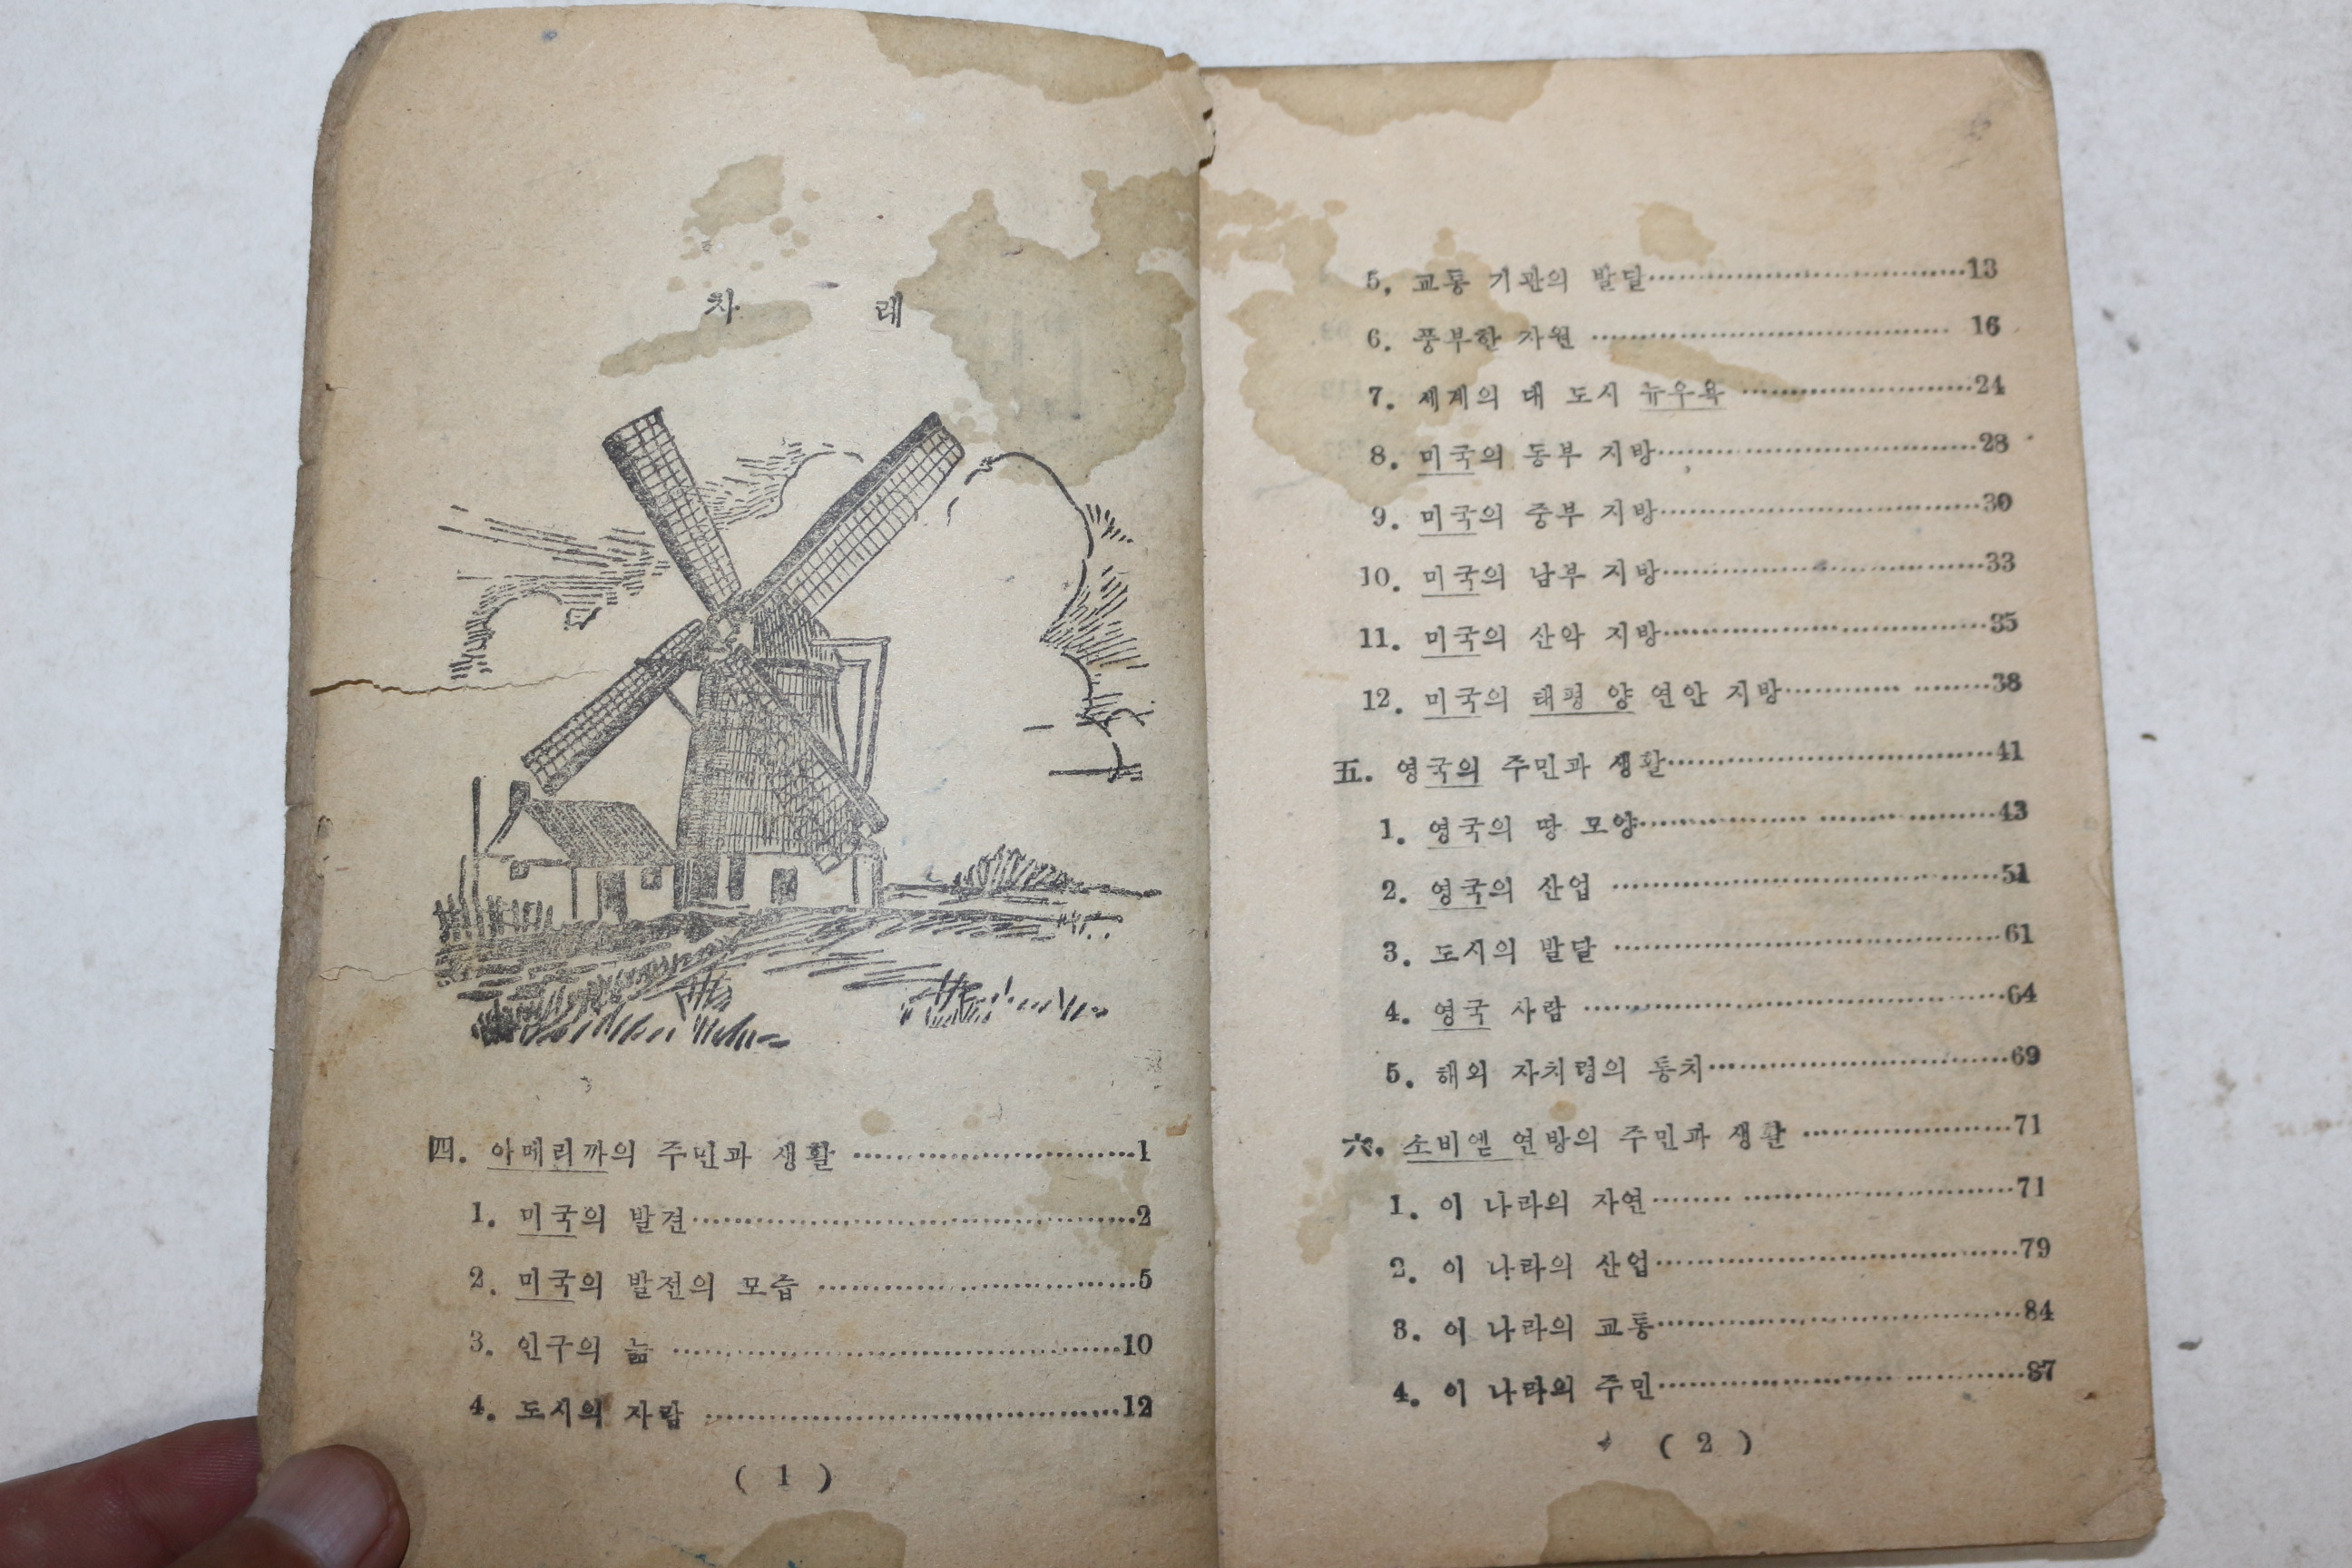 차 레
四. 아메리까의 주민과 생활 …………………………1
1. 미국의 발견…………………………………………2
2. 미국의 발전의 모습 ………………………………5
3. 인구의 늚 …………………………………………10
4. 도시의 자람 ………………………………………12
( 1 )
5. 교통 기관의 발달………………………………13
6. 풍부한 자원 …………………………………… 16
7. 세계의 대 도시 뉴우욕 ………………………24
8. 미국의 동부 지방………………………………28
9. 미국의 중부 지방………………………………30
10. 미국의 남부 지방………………………………33
11. 미국의 산악 지방………………………………35
12. 미국의 태평 양 연안 지방…………… ………38
五. 영국의 주민과 생활………………………………41
1. 영국의 땅 모양…………………………………43
2. 영국의 산업 ……………………………………51
3. 도시의 발달 ……………………………………61
4. 영국 사람 ………………………………………64
5. 해외 자치령의 통치……………………………69
六. 소비엩 연방의 주민과 생활 ……………………71
1. 이 나라의 자연…………………………………71
2. 이 나라의 산업…………………………………79
3. 이 나라의 교통…………………………………84
4. 이 나라의 주민…………………………………87
( 2 )